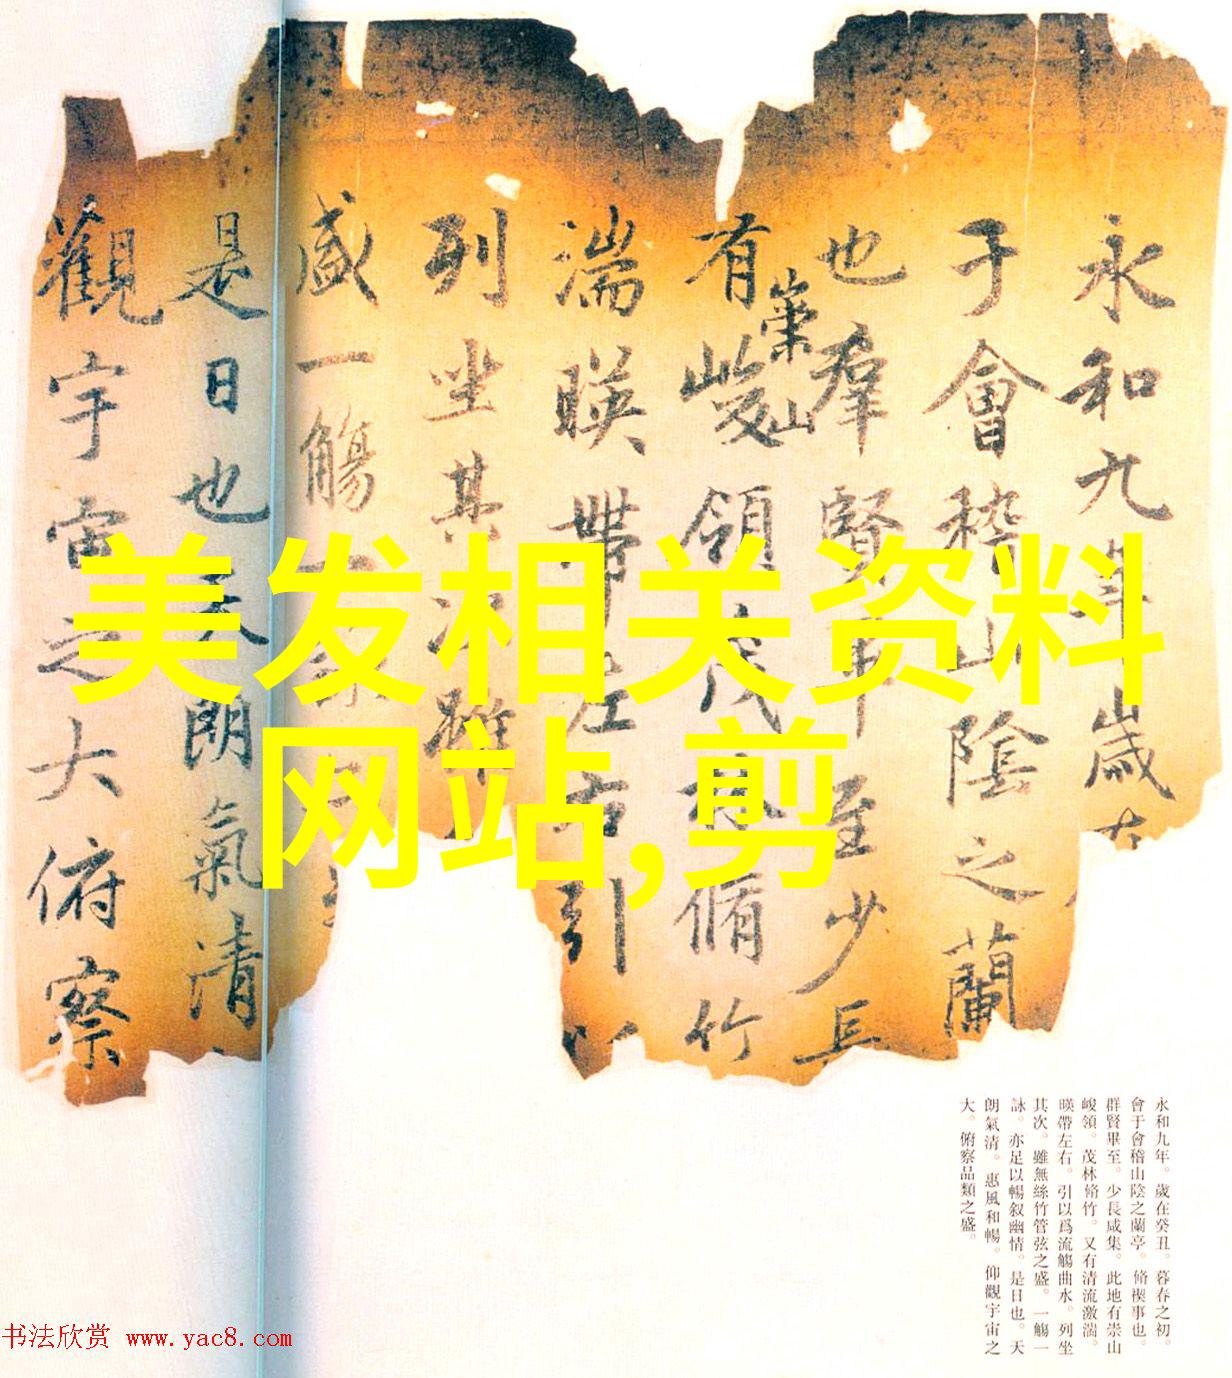 永和九年歲在
于會稽山陰之蘭
也羣賢畢至少長
有崇山峻領茂林脩竹
湍暎帶左右引以
列坐其次雖
盛一觴一
是日也天朗氣清
觀宇宙之大俯察
美发相关资料
网站,剪
永和九年。歲在癸丑。暮春之初。
會于會稽山陰之蘭亭。脩禊事也。
群賢畢至。少長咸集。此地有崇山
峻領。茂林脩竹。又有清流激湍。
暎帶左右。引以爲流觴曲水。列坐
其次。雖無絲竹管弦之盛。一觴一
詠。亦足以暢叙幽情。是日也。天
朗氣清。惠風和暢。仰觀宇宙之
大。俯察品類之盛。
书法欣赏 www.yac8.com